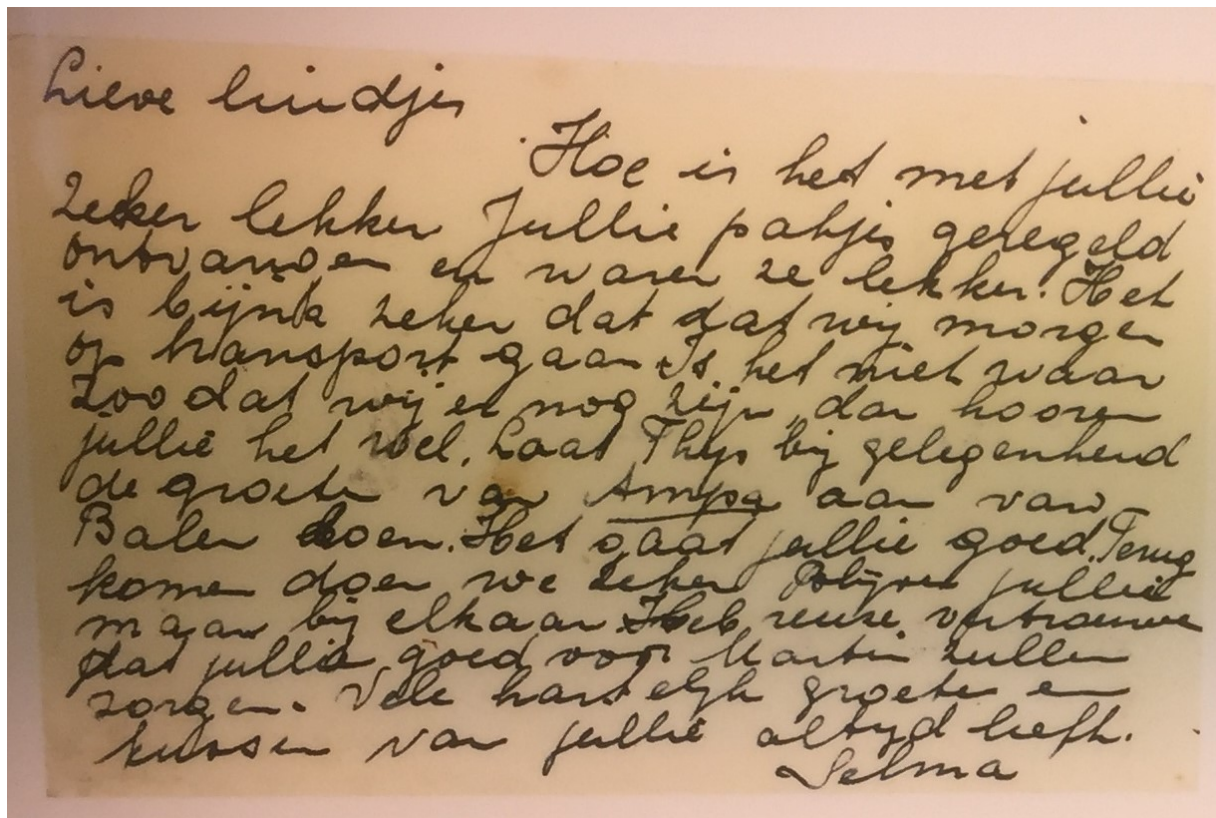 Lieve luidjes
Hoe is het met jullie
Zeker lekker Jullie pakjes geregeld
ontvangen en waren ze lekker. Het
is bijna zeker dat dat wij morgen
op transport gaan Is het niet waar
Zoo dat wij er nog zijn, dan hooren
jullie het wel. Laat Thijs bij gelegenheid
de groeten van Ampa aan van
Balen doen. Het gaat jullie goed. Terug
komen doen we zeker Blijven jullie
maar bij elkaar Heb reuze vertrouwen
dat jullie goed voor Martin zullen
zorgen. Vele hartelijk groeten en
kussen van jullie altijd liefh.
Selma